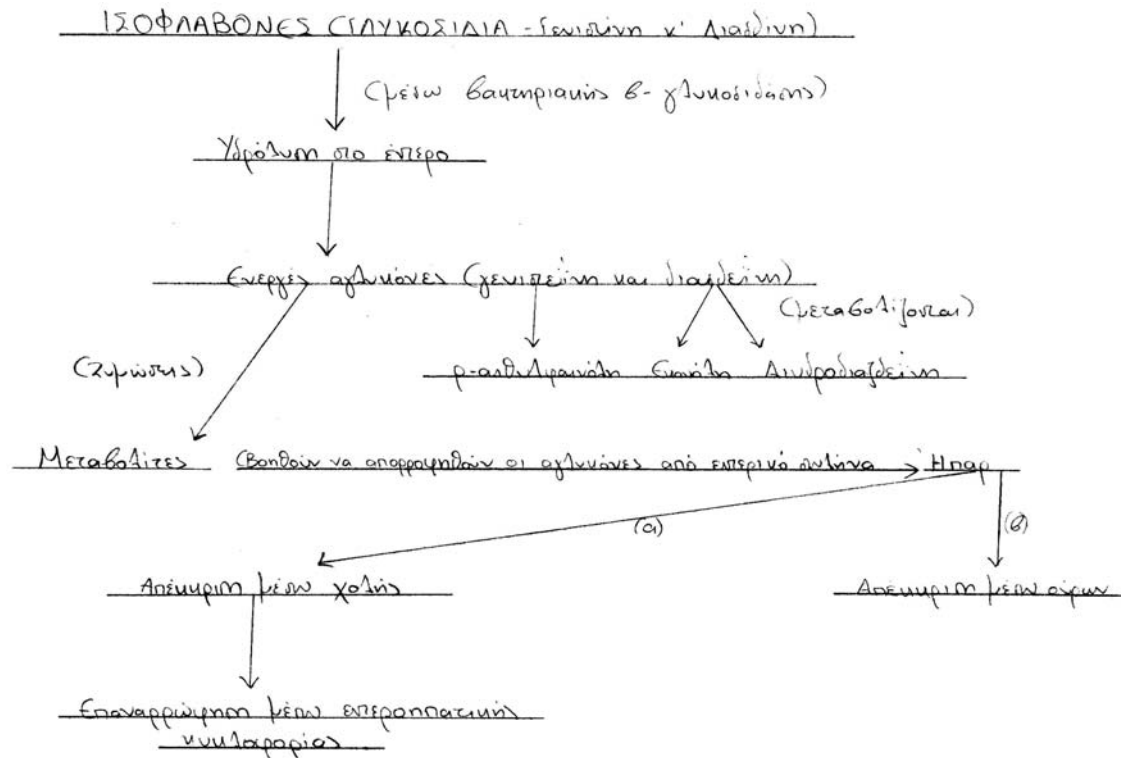 ΙΣΟΦΛΑΒΟΝΕΣ (ΓΛΥΚΟΣΙΔΙΑ - Γενιστίνη κ' Διαδζίνη)
(μέσω βακτηριακής β- γλυκοσιδάσης)
Υδρόλυση στο έντερο
Ενεργές αγλυκόνες (γενιστεΐνη και διαζδεΐνη)
(μεταβολίζονται)
(Ζυμώσεις)
p-αιθυλφαινόλη Εκουόλη Διυδροδιαζδεΐνη
Μεταβολίτες (Βοηθούν να απορροφηθούν οι αγλυκόνες από εντερικό σωλήνα Ήπαρ
(α)
(β)
Απέκκριση μέσω χολής
Απέκκριση μέσω ούρων
Επαναρρόφηση μέσω εντεροηπατικής
κυκλοφορίας